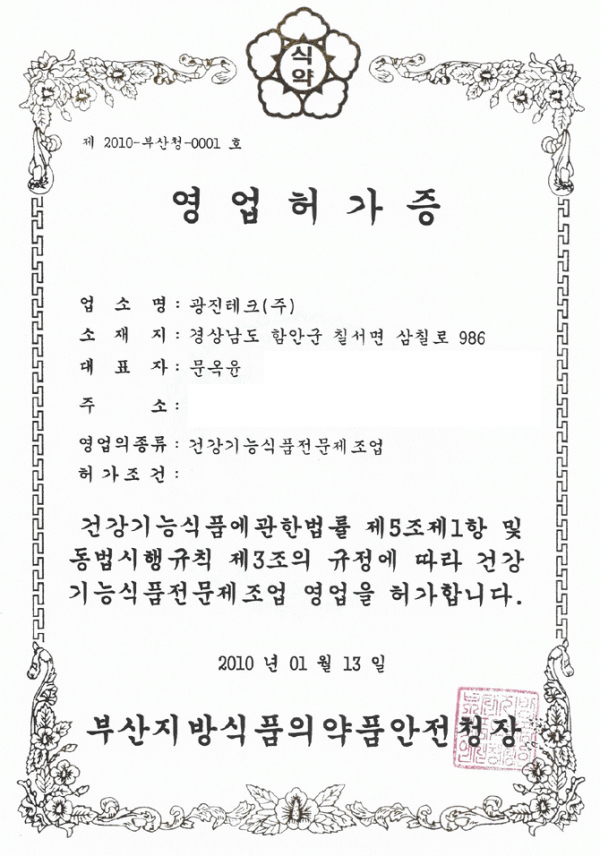 식
약
제 2010-부산청-0001 호
영 업 허 가 증
업 소 명 : 광진테크(주)
소 재 지 : 경상남도 함안군 칠서면 삼칠로 986
대 표 자 : 문옥윤
주 소 :
영업의종류 : 건강기능식품전문제조업
허가조건 :
건강기능식품에관한법률 제5조제1항 및
동법시행규칙 제3조의 규정에 따라 건강
기능식품전문제조업 영업을 허가합니다.
2010 년 01 월 13 일
부산지방식품의약품안전청장